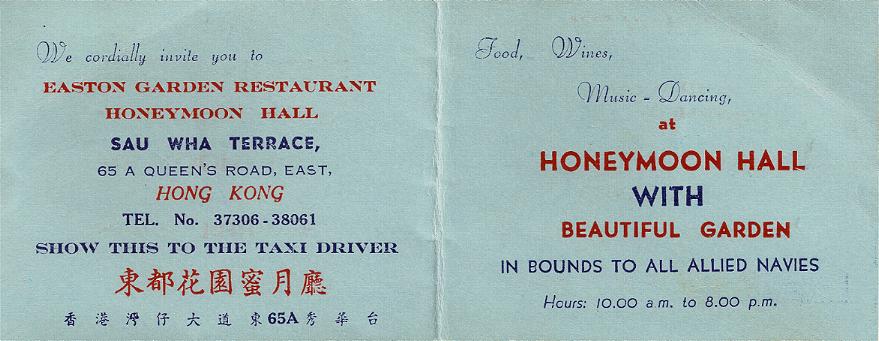 We cordially invite you to
EASTON GARDEN RESTAURANT
HONEYMOON HALL
SAU WHA TERRACE,
65 A QUEEN'S ROAD, EAST,
HONG KONG
TEL. No. 37306-38061
SHOW THIS TO THE TAXI DRIVER
東都花園蜜月廳
香港灣仔大道東65A秀華台
Food, Wines,
Music - Dancing,
at
HONEYMOON HALL
WITH
BEAUTIFUL GARDEN
IN BOUNDS TO ALL ALLIED NAVIES
Hours: 10.00 a.m. to 8.00 p.m.